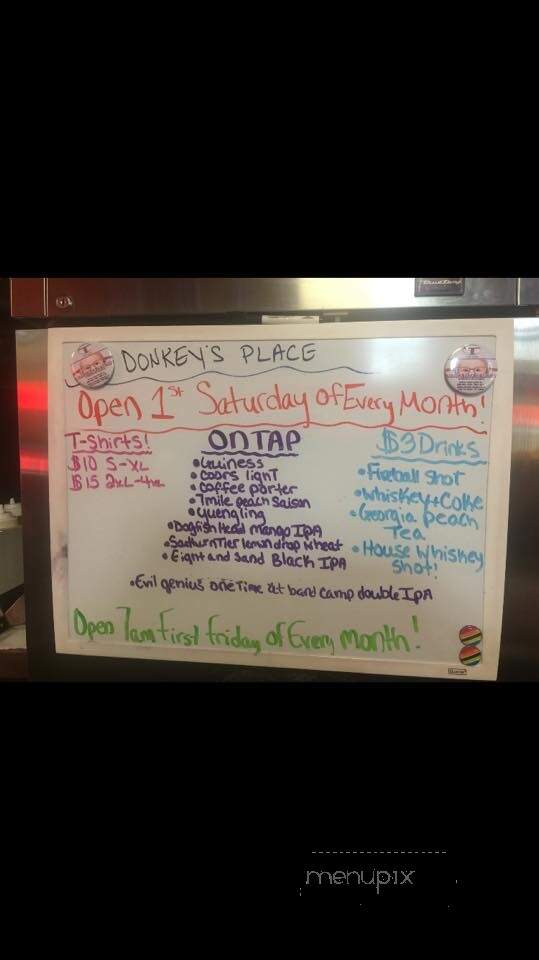 DONKEY'S PLACE
Open 1st Saturday of Every Month!
T-Shirts!
$10 S-XL
$15 2XL-4XL
ON TAP
• Guiness
• Coors light
• Coffee porter
• 7mile peach Saison
• Yuengling
• Dogfish Head Mango IPA
• lemon drop wheat
• Eight and Sand Black IPA
• Evil genius one Time at band camp double IPA
$3 Drinks
• Fireball Shot
• Whiskey+Coke
• Georgia Peach
Tea
• House Whiskey
Shot!
Open 7am First friday of Every month!
menupix